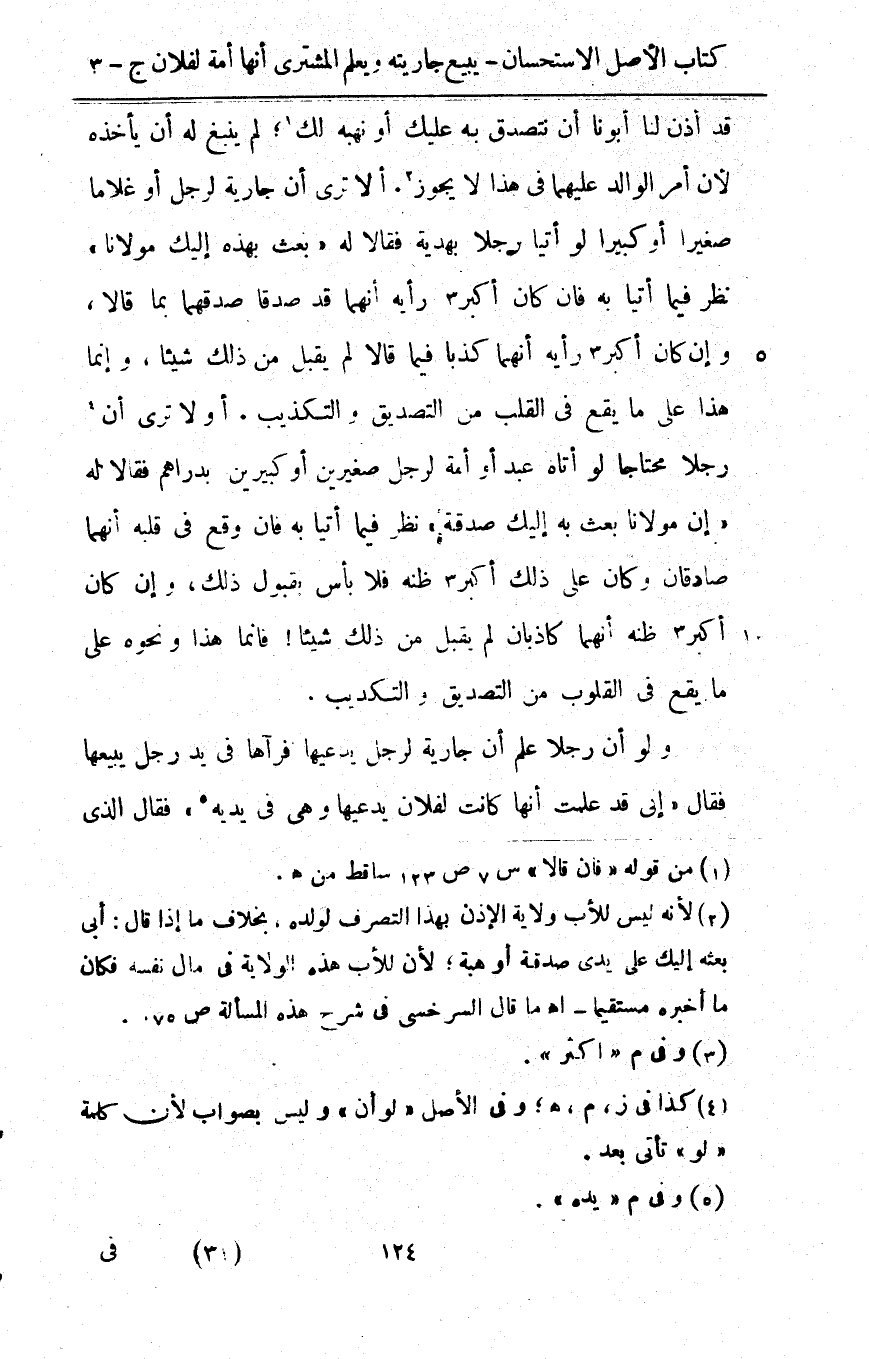 كتاب الأصل الاستحسان - يبيع جاريته ويعلم المشترى أنها أمة لفلان ج - ٣
قد أذن لنا أبونا أن نتصدق به عليك أو نهبه لك١؛ لم ينبغ له أن يأخذه
لأن أمر الوالد عليهما فى هذا لا يجوز٢. ألا ترى أن جارية لرجل أو غلاما
صغيرا أو كبيرا لو أتيا رجلا بهدية فقالا له « بعث بهذه إليك مولانا »
نظر فيما أتيا به فان كان أكبر٣ رأيه أنهما قد صدقا صدقهما بما قالا ،
٥ و إن كان أكبر٣ رأيه أنهما كذبا فيما قالا لم يقبل من ذلك شيئا ، و إنما
هذا على ما يقع فى القلب من التصديق و التكذيب . أو لا ترى أن٤
رجلا محتاجا لو أتاه عبد أو أمة لرجل صغيرين أو كبيرين بدراهم فقالا له
« إن مولانا بعث به إليك صدقة » نظر فيما أتيا به فان وقع فى قلبه أنهما
صادقان وكان على ذلك أكبر٣ ظنه فلا بأس بقبول ذلك ، و إن كان
١٠ أكبر٣ ظنه أنهما كاذبان لم يقبل من ذلك شيئا ! فانما هذا و نحوه على
ما يقع فى القلوب من التصديق و التكديب .
و لو أن رجلا علم أن جارية لرجل يدعيها فرآها فى يد رجل يبيعها
فقال « إنى قد علمت أنها كانت لفلان يدعيها و هى فى يديه٥ » فقال الذى
(١) من قوله « فان قالا » س ٧ ص ١٢٣ ساقط من ه .
(٢) لأنه ليس للأب ولاية الإذن بهذا التصرف لولده ، بخلاف ما إذا قال : أبى
بعثه إليك على يدى صدقة أو هبة ؛ لأن للأب هذه الولاية فى مال نفسه فكان
ما أخبره مستقيما - اه ما قال السرخسى فى شرح هذه المسألة ص ٧٥ .
(٣) و فى م « اكثر » .
(٤) كذا فى ز ، م ، ه ؛ و فى الأصل « لو أن » و ليس بصواب لأن كلمة
« لو » تأتى بعد .
(٥) و فى م « يده » .
١٢٤ (٣١) فى